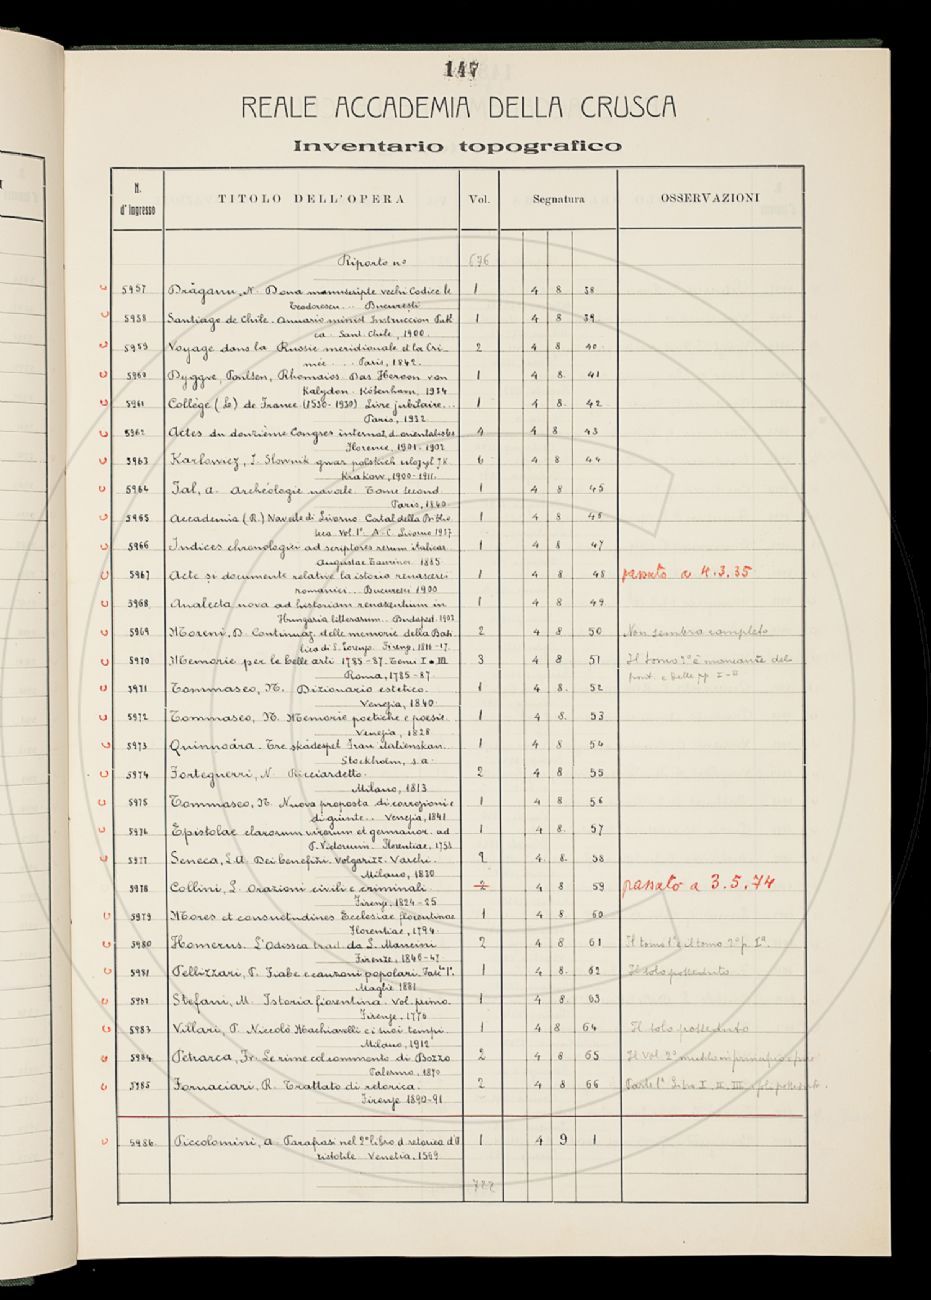 147
REALE ACCADEMIA DELLA CRUSCA
Inventario topografico
N. d'Ingresso TITOLO DELL'OPERA Vol. Segnatura OSSERVAZIONI
Riporto no 676
5957 Drăganu, N. Doua manuscripte vechi Codice le 1 4 8 38
Teodorescu... Bucuresti
5958 Santiago de Chile. Annuario minist Instruccion Publ 1 4 8 39
ca. Sant. Chile, 1900.
5959 Voyage dans la Russie meridionale et la Cri- 2 4 8 40
mée... Paris, 1842.
5960 Dyggve, Poulsen, Rhomaios. Das Heroon von 1 4 8. 41
Kalydon. Köbenhavn, 1934
5961 Collège (Le) de France (1530-1930) Livre jubilaire... 1 4 8. 42
Paris, 1932
5962 Actes du douzième Congres internat. d. orientalistes 4 4 8 43
Florence, 1901-1902
5963 Karlowicz, J. Slownik gwar polskich ulozyl J K 6 4 8 44
Krakow, 1900-1911.
5964 Jal, A. Archéologie navale. Tome second 1 4 8 45
Paris, 1840.
5965 Accademia (R.) Navale di Livorno. Catal. della Biblio 1 4 8 46
teca. Vol. 1º A-C. Livorno 1937
5966 Indices chronologici ad scriptores rerum italicar. 1 4 8 47
Augustae Taurinor. 1885
5967 Acte si documente relative la istoria renascerei 1 4 8 48 passato a 4.3.35
romaniei... Bucuresti 1900
5968 Analecta nova ad historiam renascentium in 1 4 8 49
Hungaria litterarum... Budapest. 1903
5969 Moreni, D. Continuaz. delle memorie della Basi 2 4 8 50 Non sembra completo
lica di S. Lorenzo. Firenze. 1816-17.
5970 Memorie per le belle arti 1785-87. Tomi I e III 3 4 8 51 Il tomo 2º è mancante del
Roma, 1785-87. front. e delle pp I-II
5971 Tommaseo, N. Dizionario estetico. 1 4 8. 52
Venezia, 1840.
5972 Tommaseo, N. Memorie poetiche e poesie. 1 4 8. 53
Venezia, 1828
5973 Tre skådespel fran italienskan. 1 4 8 54
Stockholm, s.a.
5974 Forteguerri, N. Ricciardetto. 2 4 8 55
Milano, 1813
5975 Tommaseo, N. Nuova proposta di correzioni e 1 4 8 56
di giunte... Venezia, 1841
5976 Epistolae clarorum virorum et germanor. ad 1 4 8. 57
P. Victorium. Florentiae, 1758
5977 Seneca, L.A. Dei benefizi. Volgarizz. Varchi. 2 4. 8. 58
Milano, 1830
5978 Collini, L. Orazioni civili e criminali. 2 4 8 59 passato a 3.5.74
Firenze, 1824-25
5979 Mores et consuetudines Ecclesiae florentinae 1 4 8 60
Florentiae, 1794.
5980 Homerus. L'Odissea trad. da L. Mancini 2 4 8 61 Il tomo 1º e il tomo 2º p. Iª.
Firenze, 1846-47
5981 Pellizzari, P. Fiabe e canzoni popolari. Fasc. 1º. 1 4 8. 62 Il solo posseduto
Maglie 1881
5982 Stefani, M. Istoria fiorentina. Vol. primo. 1 4 8. 63
Firenze, 1776
5983 Villari, P. Niccolò Machiavelli e i suoi tempi. 1 4 8 64 Il solo posseduto
Milano, 1912
5984 Petrarca, Fr. Le rime col commento di Bozzo 2 4 8 65 Il Vol. 2º mutilo in principio e
Palermo, 1870
5985 Fornaciari, R. Trattato di retorica. 2 4 8 66 Parte 1ª Libro I, II, III, i soli posseduti.
Firenze 1890-91
5986. Piccolomini, A. Parafrasi nel 2º libro d. retorica d'A 1 4 9 1
ristotile Venetia, 1569
722